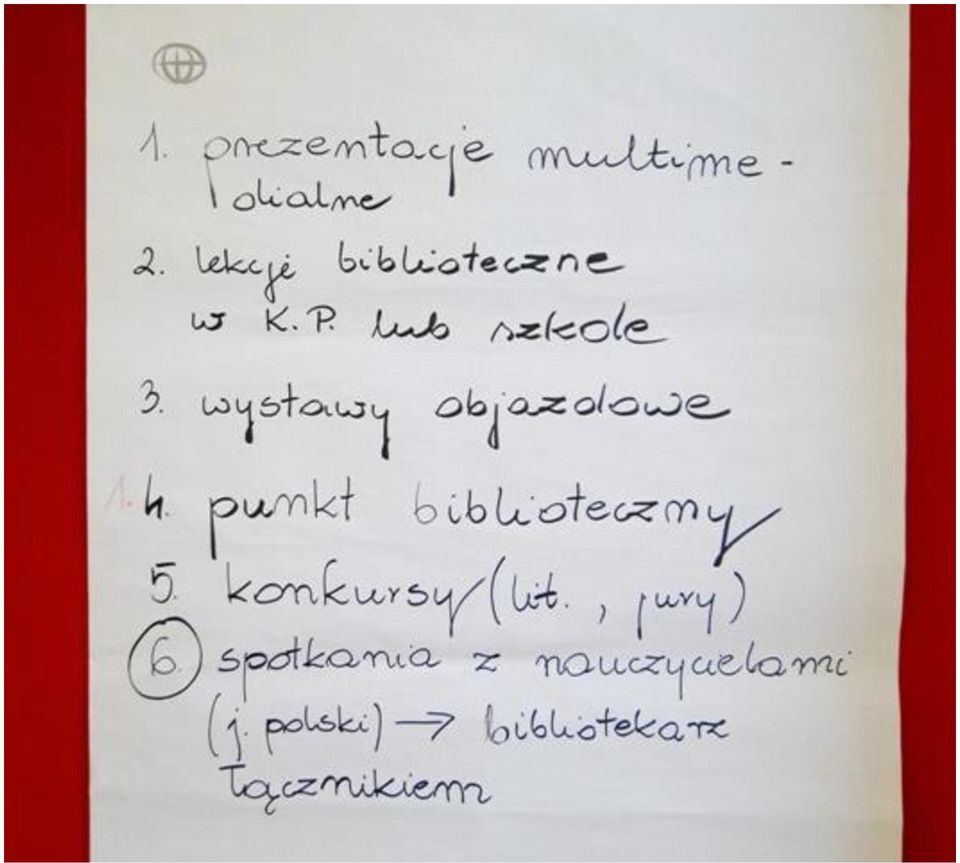 1. prezentacje multime-
dialne
2. lekcje biblioteczne
w K.P. lub szkole
3. wystawy objazdowe
1. 4. punkt biblioteczny
5. konkursy (lit., jury)
6. spotkania z nauczycielami
(j. polski) → bibliotekarz
łącznikiem